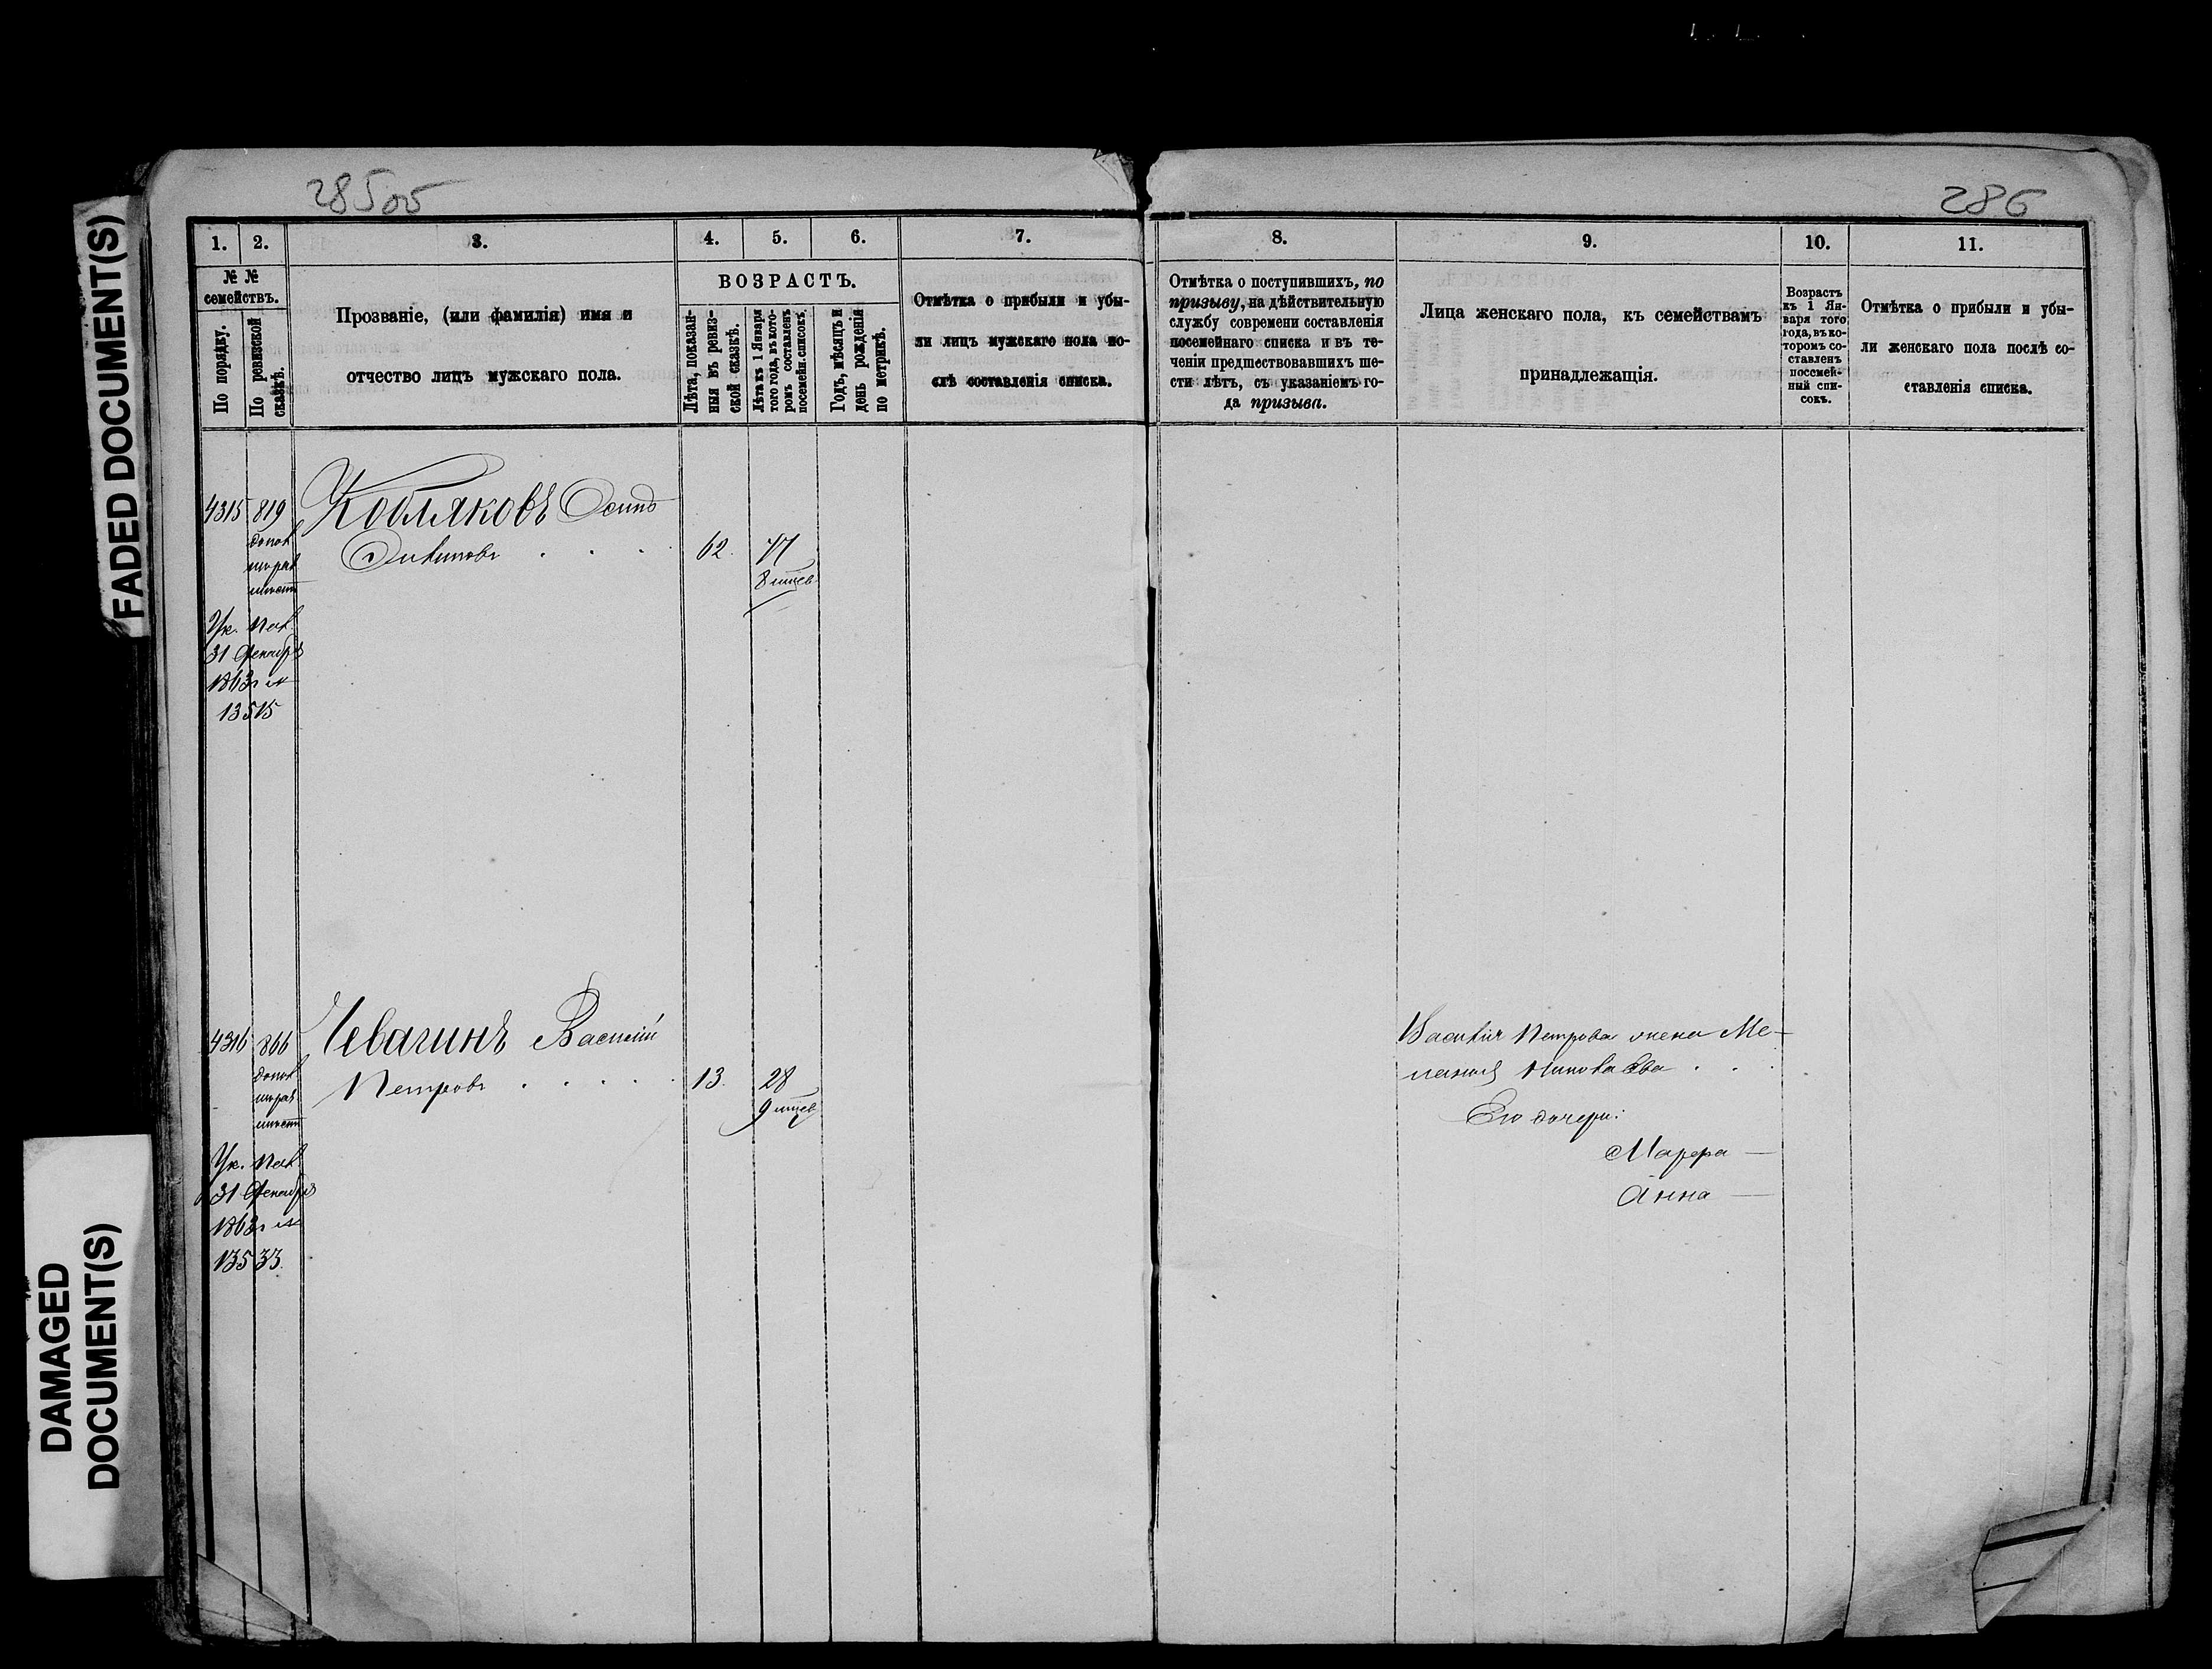 285об
286
FADED DOCUMENT(S)
DAMAGED
DOCUMENT(S)
1.
2.
3.
4.
5.
6.
7.
8.
9.
10.
11.
№ №
семействъ.
По порядку.
По ревизской
сказкѣ.
Прозваніе, (или фамилія) имя и
отчество лицъ мужскаго пола.
ВОЗРАСТЪ.
Лѣта, показан-
ныя въ ревиз-
ской сказкѣ.
Лѣта къ 1 Января
того года, въ кото-
ромъ составленъ
посемейн. списокъ.
Годъ, мѣсяцъ и
день рожденія
по метрикѣ.
Отмѣтка о прибыли и убы-
ли лицъ мужскаго пола по-
слѣ составленія списка.
Отмѣтка о поступившихъ, по
призыву, на дѣйствительную
службу современи составленія
посемейнаго списка и въ те-
ченіи предшествовавшихъ ше-
сти лѣтъ, съ указаніемъ го-
да призыва.
Лица женскаго пола, къ семействамъ
принадлежащія.
Возрастъ
къ 1 Ян-
варя того
года, въ ко-
торомъ со-
ставленъ
посемей-
ный спи-
сокъ.
Отмѣтка о прибыли и убы-
ли женскаго пола послѣ со-
ставленія списка.
4315 819 Кобляковъ Осипъ
62. 47
Ук. Пал.
31 Декабря
1863 г №
13515
4316 866 Чевагинъ Василій
Петровъ . . . . . 13. 28
Ук. Пал.
31 Декабря
1863 г №
13533.
Василія Петрова жена Ме-
Его дочери:
Марфа —
Анна —